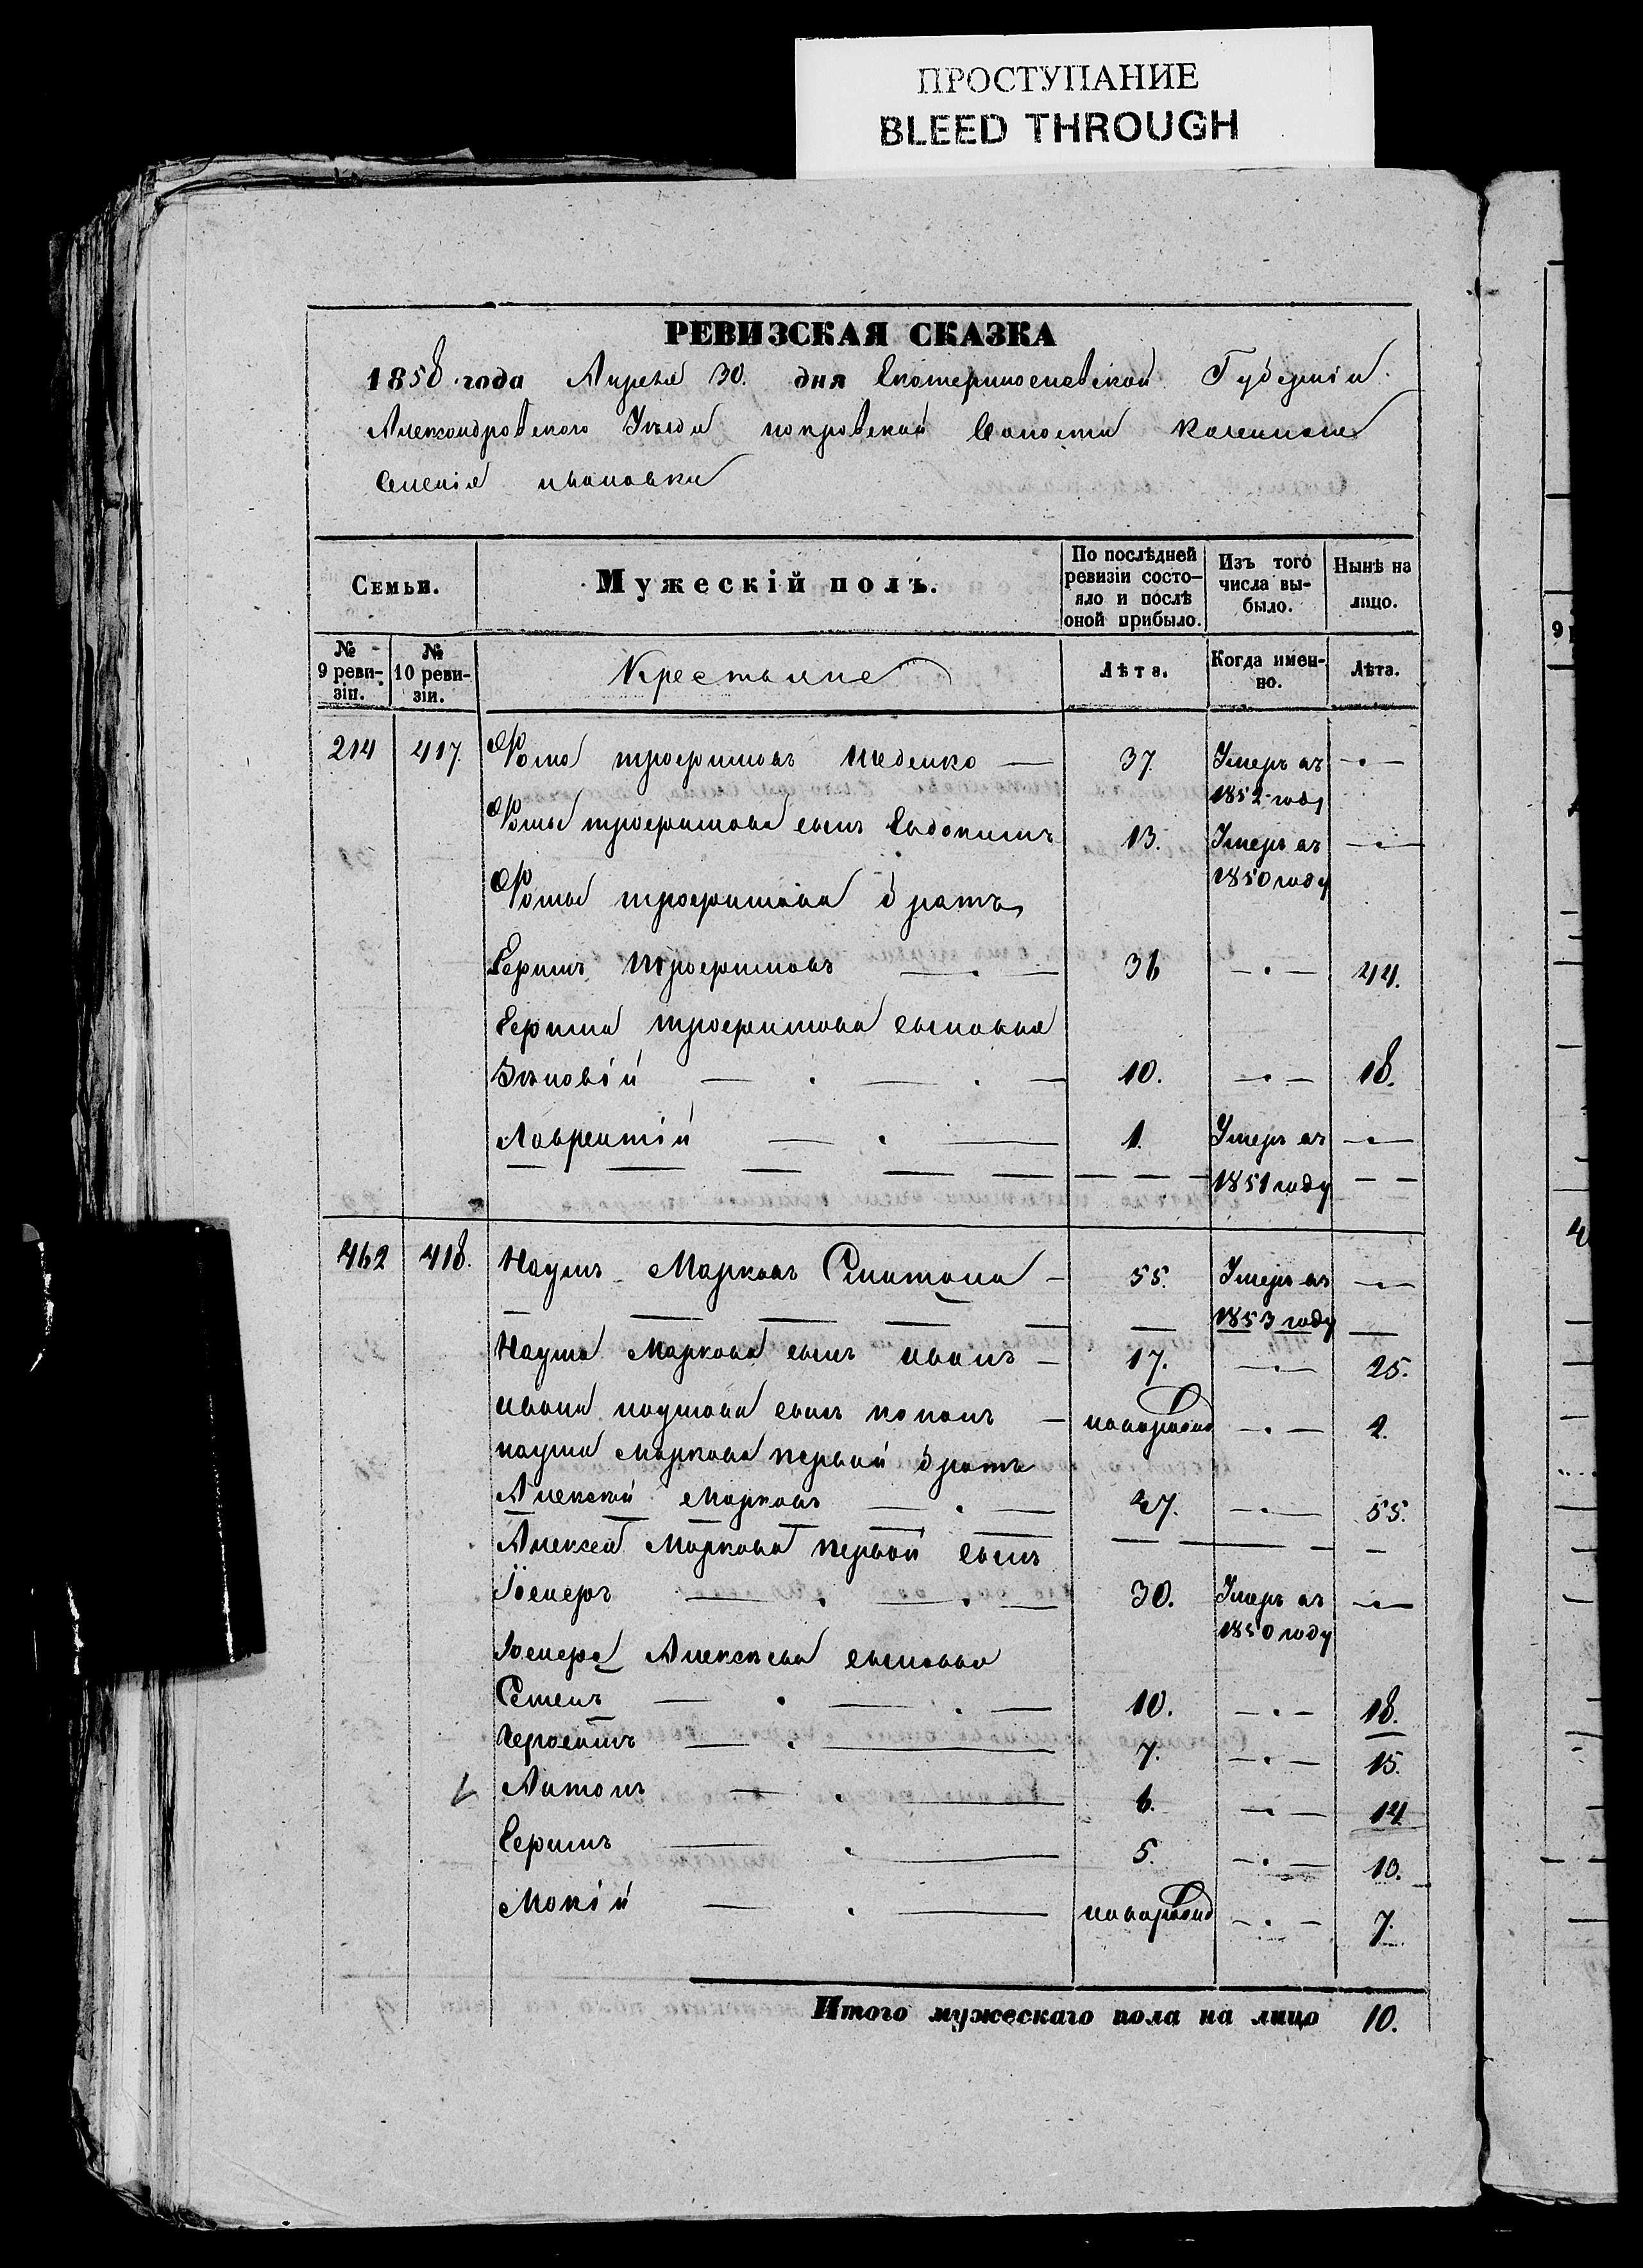 ПРОСТУПАНИЕ
BLEED THROUGH
РЕВИЗСКАЯ СКАЗКА
1858 года Апреля 30. дня Екатеринославской Губерніи
Александровского Уѣзда покровской Волости казеннаго
Селенія ивановки
Семьи. Мужескій полъ. По послѣдней ревизіи состо- яло и послѣ оной прибыло. Изъ того числа вы- было. Нынѣ на лицо.
№ 9 реви- зіи. № 10 реви- зіи. Крестьяне Лѣта. Когда имен- но. Лѣта.
214 417. Фома трофимовъ 37. Умеръ въ
1852 году
Фомы трофимова сынъ Евдокимъ 13. Умеръ въ
1850 году
Фомы трофимова братъ
Ефимъ трофимовъ 36 44.
Ефима трофимова сыновья
Зѣновій 10. 18.
Лаврентій 1. Умеръ въ
1851 году
462 418. Наумъ Марковъ 55. Умеръ въ
1853 году
Наума Маркова сынъ иванъ 17. 25.
ивана наумова сынъ кононъ новорожд 2.
наума Маркова первый братъ
Алексѣй Марковъ 47. 55.
Алексея Маркова первой сынъ
30. Умеръ въ
1850 году
Алексѣева сыновья
Семенъ 10. 18.
7. 15.
Антонъ 6. 14
Ефимъ 5. 13.
Мокій новорожд 7.
Итого мужескаго пола на лицо 10.